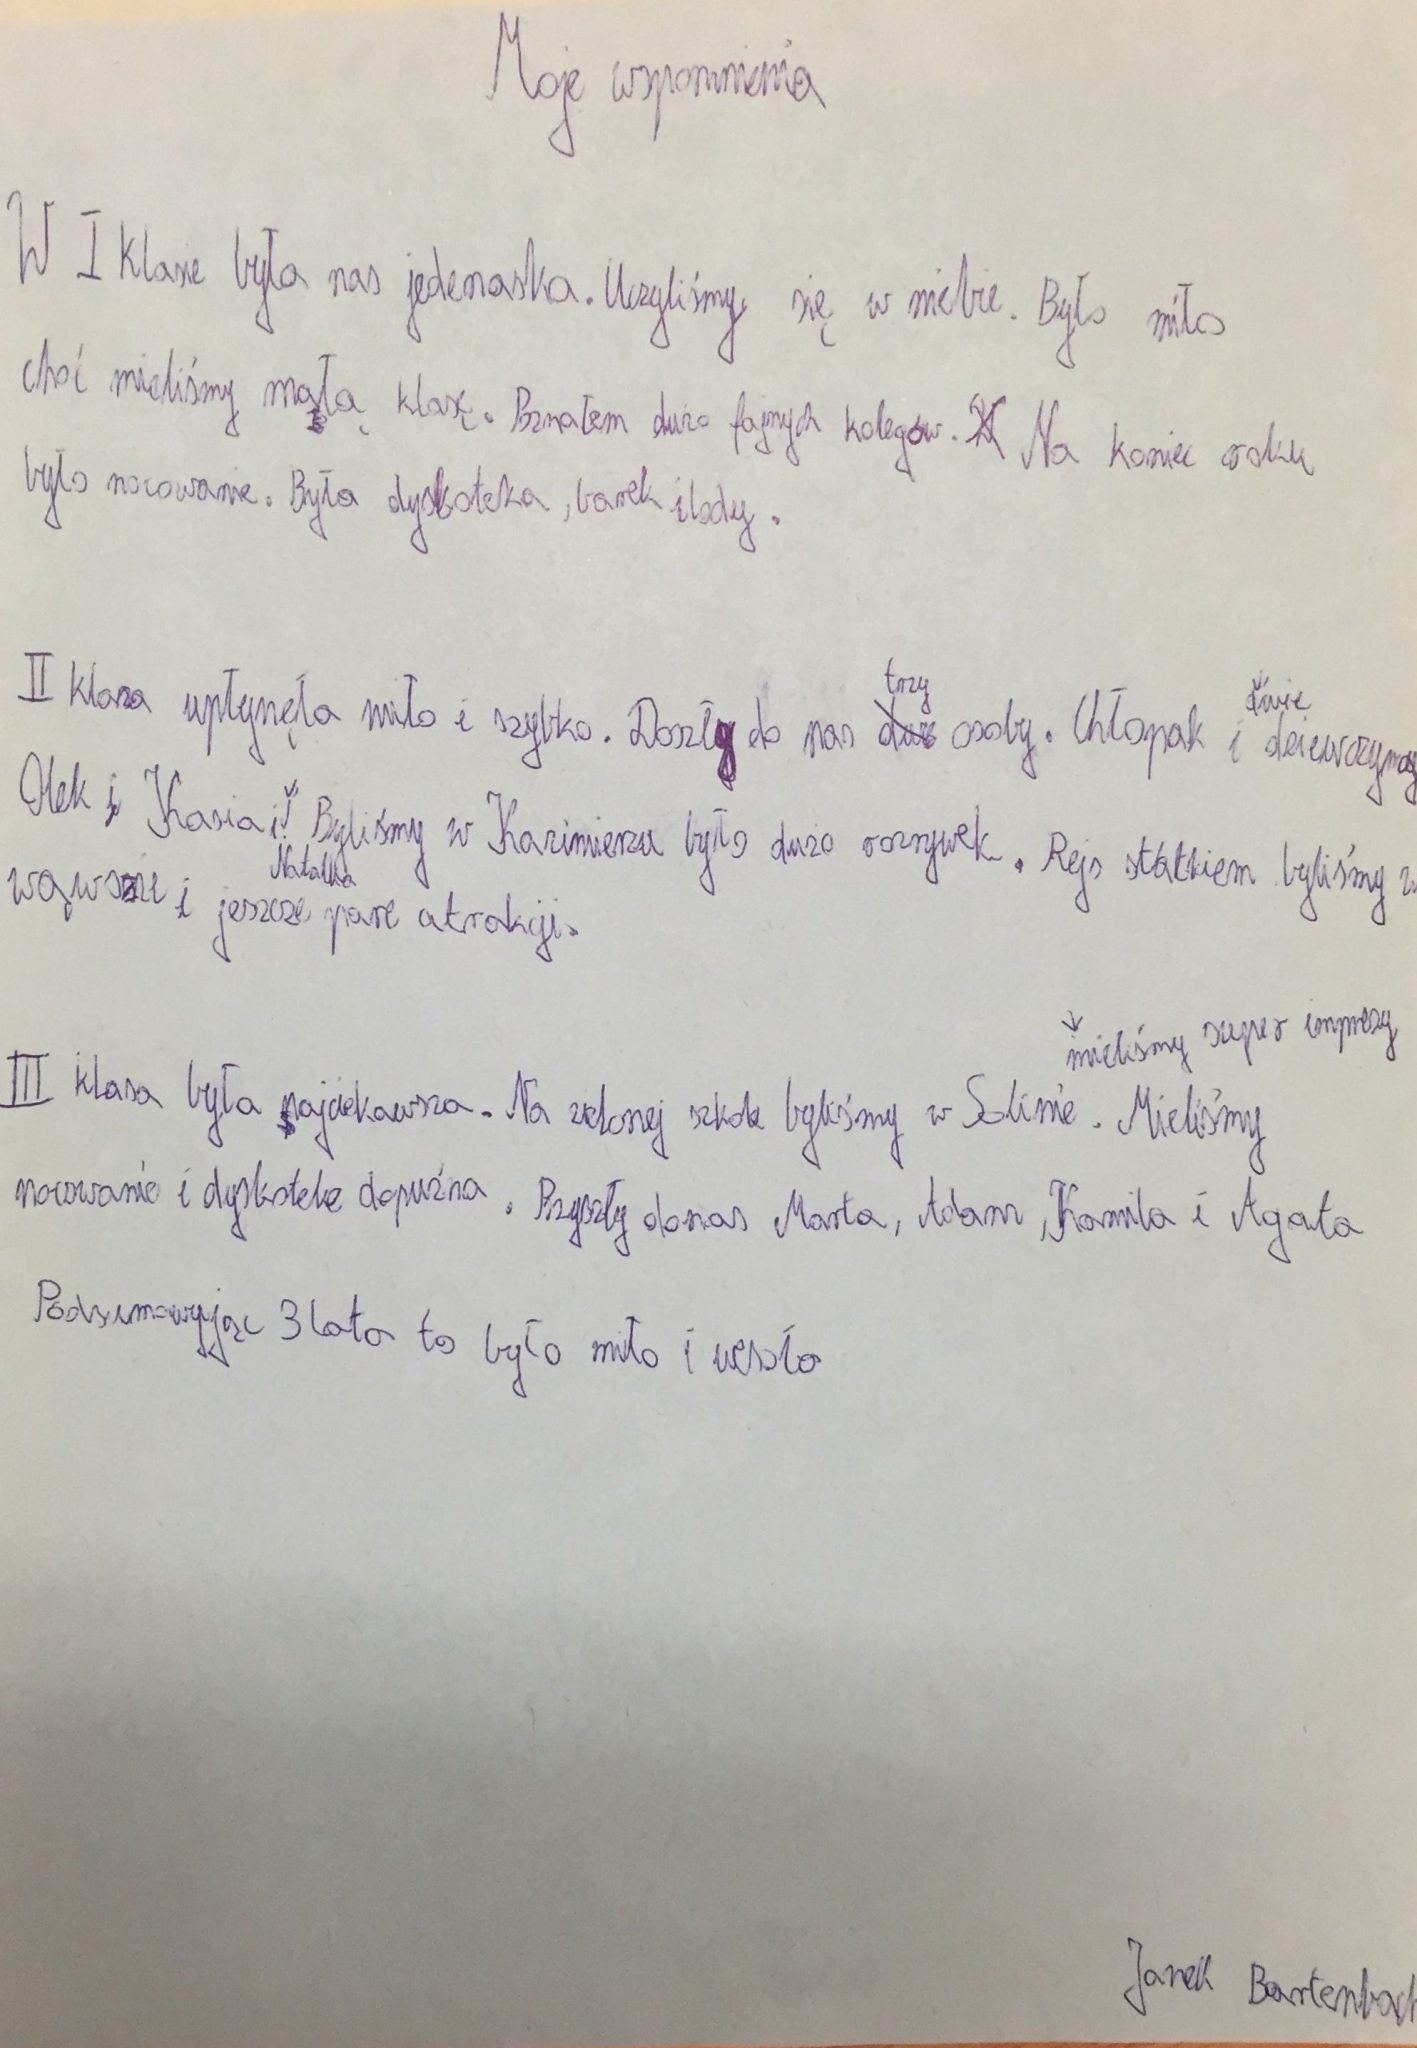 Moje wspomnienia
W I klasie była nas jedenastka. Uczyliśmy się w niebie. Było miło
choć mieliśmy małą klasę. Poznałem dużo fajnych kolegów. Na koniec roku
było nocowanie. Była dyskoteka, barek i lody.
trzy dwie
II klasa upłynęła miło i szybko. Doszły do nas osoby. Chłopak i dziewczyny
Olek i Kasia i Byliśmy w Kazimierzu było dużo rozrywek. Rejs statkiem byliśmy w
Natalka
wąwozie i jeszcze parę atrakcji.
mieliśmy super imprezy
III klasa była najciekawsza. Na zielonej szkole byliśmy w Solinie. Mieliśmy
nocowanie i dyskotekę dopuźna. Przyszły donas Marta, Adam, Kamila i Agata
Podsumowyjąc 3 lata to było miło i wesoło
Janek Bartenbach